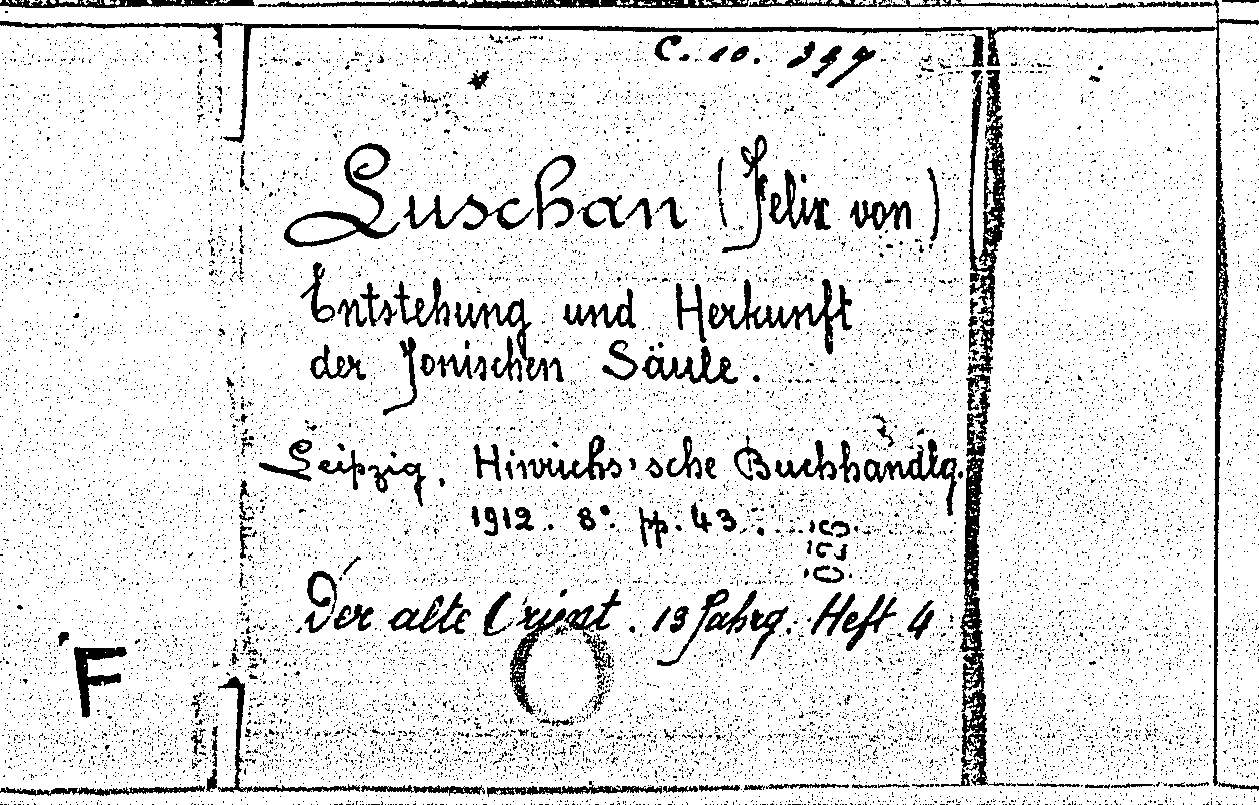 C. 10. 397
Luschan (Felix von)
Entstehung und Herkunft
der Jonischen Säule.
Leipzig. Hinrichs'sche Buchhandlg.
1912. 8°. pp. 43.
026
Der alte Orient. 13 Jahrg. Heft 4
F